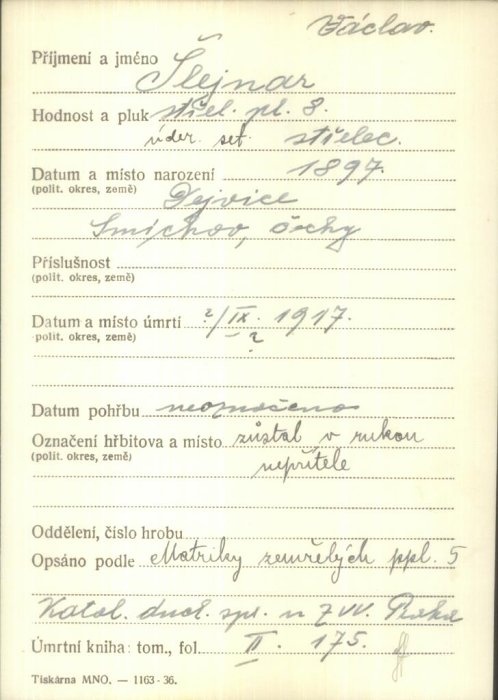 Václav.
Příjmení a jméno Šlejnar
Hodnost a pluk střel. pl. 8.
úder. set. střelec.
Datum a místo narození 1897.
(polit. okres, země) Dejvice
Smíchov, Čechy
Příslušnost
(polit. okres, země)
Datum a místo úmrtí ?/IX. 1917.
polit. okres, země) – ?
Datum pohřbu neoznačeno
Označení hřbitova a místo zůstal v rukou
(polit. okres, země) nepřítele
Oddělení, číslo hrobu
Opsáno podle Matriky zemřelých ppl. 5
Katol. duch. spr. u ZVV. Praha
Úmrtní kniha: tom., fol. II. 175.
Tiskárna MNO. — 1163-36.